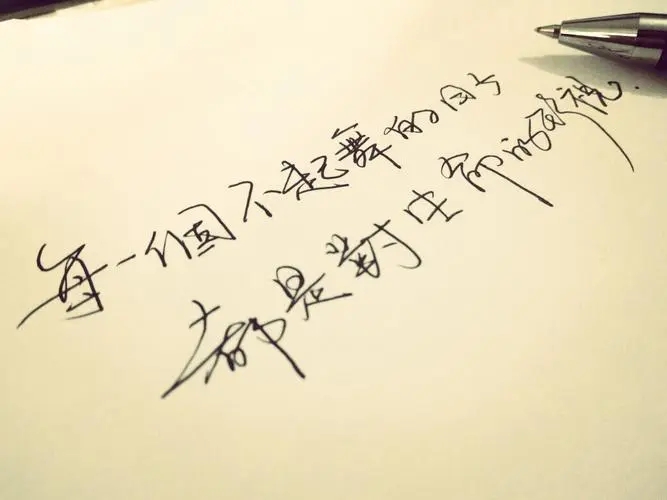 每一個不起舞的日子
都是對生命的辜視.